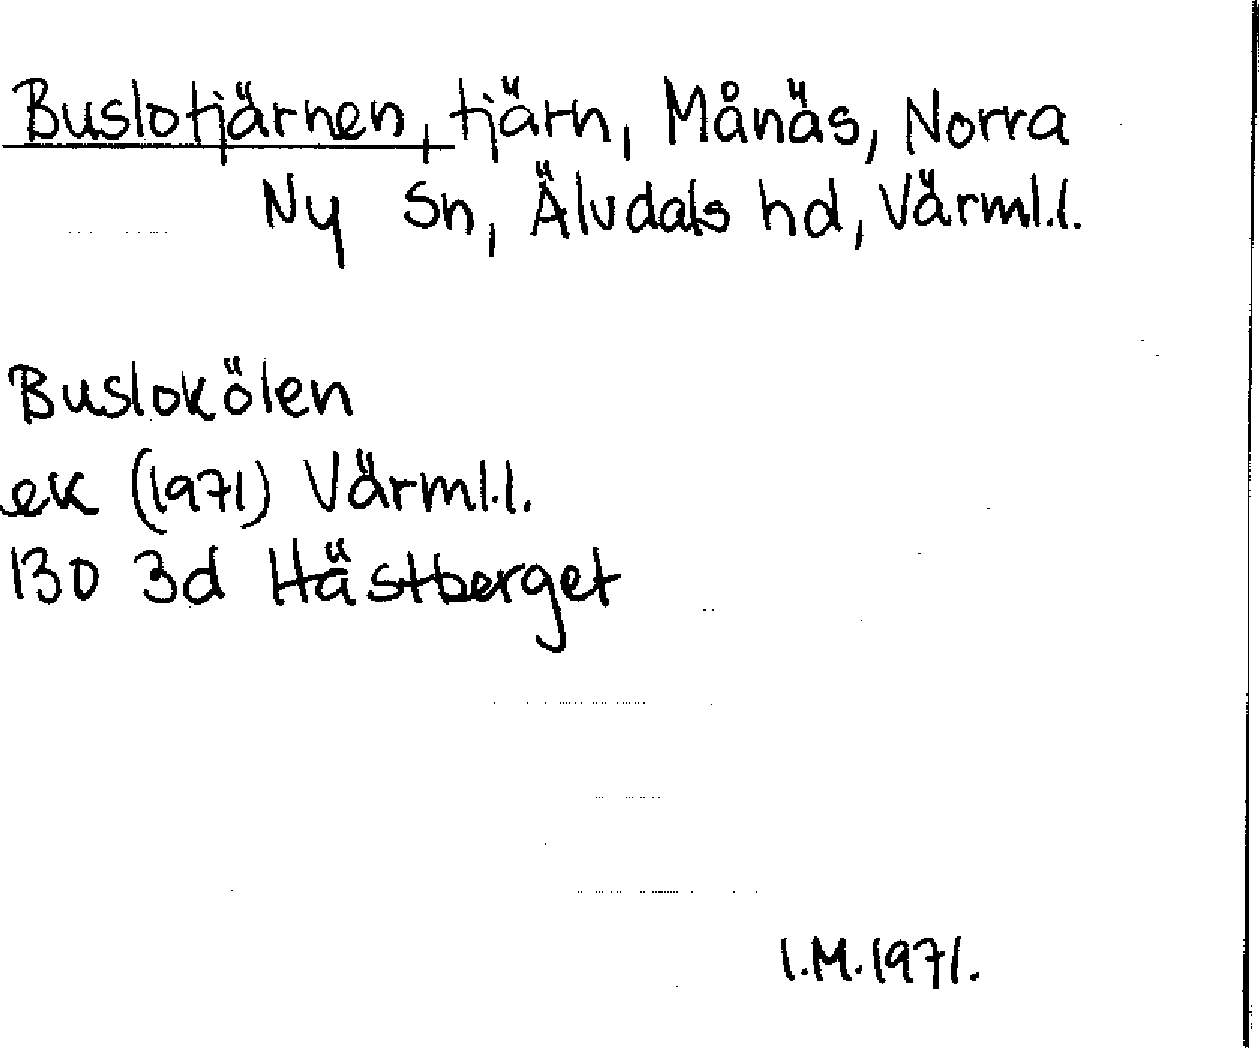 Buslotjärnen, tjärn, Månäs, Norra
Ny Sn, Älvdals hd, Värml.l.
Buslokölen
ek (1971) Värml.l.
13D 3d Hästberget
I.M.1971.